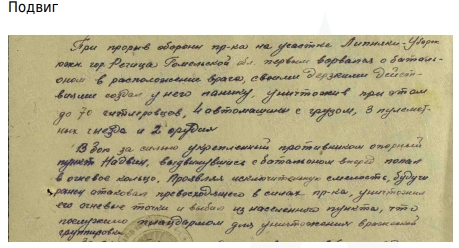 Подвиг
При прорыве обороны пр-ка на участке Липняки-Уборок
южн. гор. Речица Гомельской обл. первым ворвался с баталь-
оном в расположение врага, своими дерзкими дейст-
виями создал у него панику, уничтожив при этом
до 70 гитлеровцев, 4 автомашины с грузом, 3 пулемет-
ных гнезда и 2 орудия
В бою за сильно укрепленный противником опорный
пункт Надвин, выдвинувшись с батальоном вперед попал
в огневое кольцо. Проявляя исключительную смелость, будучи
ранен атаковал превосходящего в силах пр-ка, уничтожил
его огневые точки и выбил из населенного пункта, что
послужило плацдармом для уничтожения вражеской
группировки